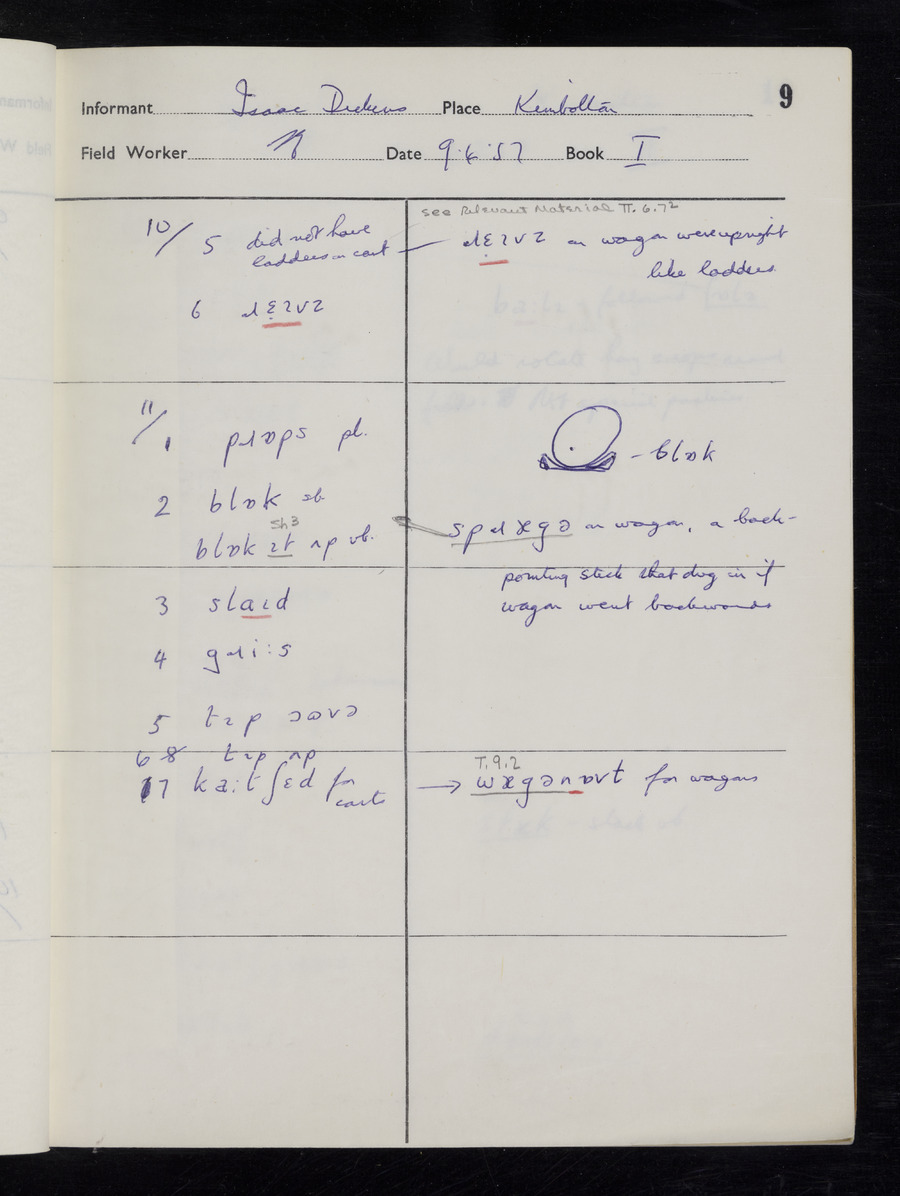 9
Informant Isaac Dickens Place Kimbolton
Field Worker Date 9.4.57 Book I
see Relevant Material II. 6. 7²
10/ 5 did not have
ladders on cart
ɹɛɪvz on wagon were upright
like ladders
6 ɹɛɪvz
11/ 1 pɹɒps pl.
2 blɒk sb.
– blɒk
sh3
blɒk ɪt ʌp vb.
spɹægə on wagon, a back-
pointing stick that dug in if
wagon went backwards
3 slaɪd
4 gɹi:s
5 tɪp ɔʊvə
6 8 tɪp ʌp
T.9.2
7 ka:t ʃɛd for
carts
→ wægənɒvt for wagons